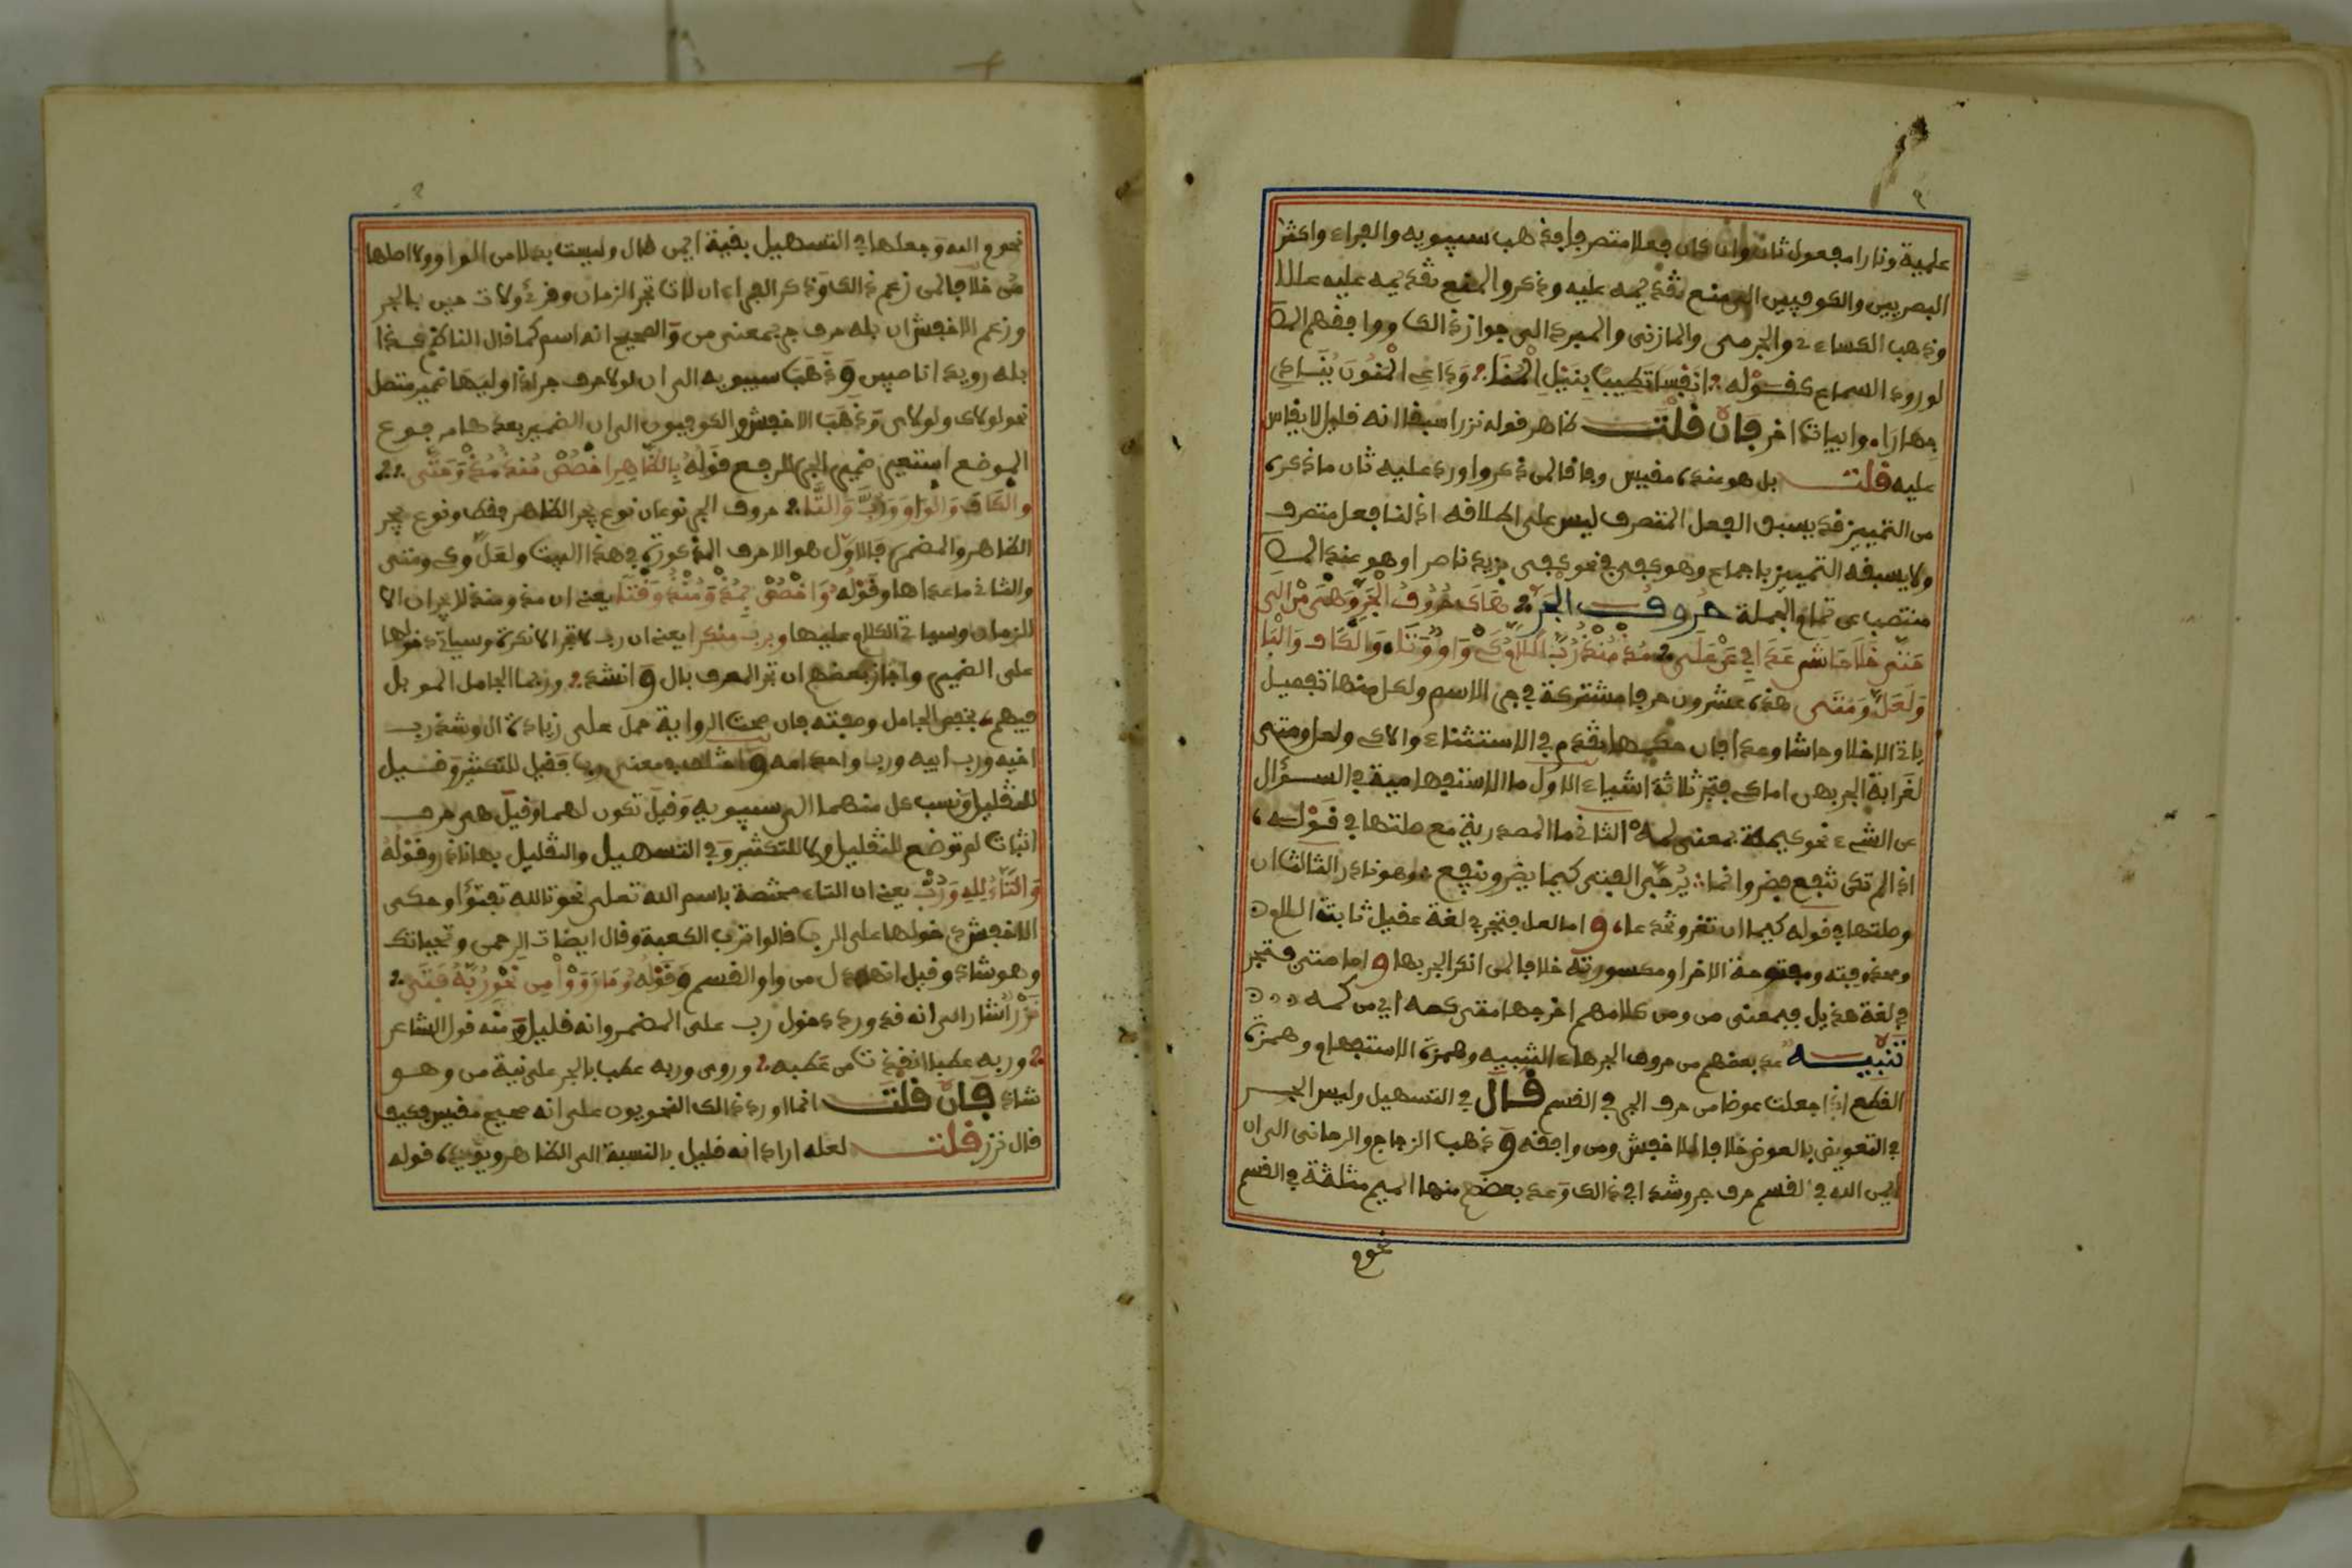 علمية ونارا مفعول ثان وان كان فعلا متصرفا فذهب سيبويه والفراء واكثر
البصريين والكوفيين الى منع تقديمه عليه وذكروا لمنع تقديمه عليه عللا
وذهب الكساءي والجرمي والمازني والمبرد الى جواز ذالك ووافقهم المص
لورود السماع كقوله انفسا تطيب بنيل المنا وداعي المنون ينادي
جهارا وابياتا اخر فان قلت ظاهر قوله نزرا سبقا انه قليل لا يقاس
عليه قلت بل هو عنده مقيس وفاقا لمن ذكر واورد عليه ثان ما ذكره
من التمييز قد يسبق الفعل المتصرف ليس على اطلاقه اذ لنا فعل متصرف
ولا يسبقه التمييز باجماع وهو كفى في نحو كفى بزيد ناصرا وهو عند المص
منتصب عن تمام الجملة حروف الجر هاك حروف الجر وهي من الى
حتى خلا حاشى عدا في عن على مذ منذ رب اللام كي واو وتا والكاف والبا
ولعل ومتى هذه عشرون حرفا مشتركة في جر الاسم ولكل منها تفصيل
ياتي الا خلا وحاشا وعدا فان حكمها تقدم في الاستثناء والا كي ولعل ومتى
لغرابة الجر بهن اما كي فتجر ثلاثة اشياء الاول ما الاستفهامية في السؤال
عن الشيء نحو كيمه بمعنى لمه الثاني ما المصدرية مع صلتها في قوله
اذا لم تكن تنفع فضر وانما يرجى الفتى كيما يضر وينفع وهو نادر الثالث ان
وصلتها في قوله كيما ان تغر وتخدعا واما لعل فتجر في لغة عقيل ثابتة اللام
ومحذوفته ومفتوحة الاخر او مكسورته خلافا لمن انكر الجر بها واما متى فتجر
في لغة هذيل فبمعنى من ومن كلامهم اخرجها متى كمه اي من كمه
تنبيه عد بعضهم من حروف الجر هاء التنبيه وهمزة الاستفهام وهمزة
القطع اذا جعلت عوضا من حرف الجر في القسم قال في التسهيل وليس الجر
في التعويض بالعوض خلافا للاخفش ومن وافقه وذهب الزجاج والرماني الى ان
ايمن الله في القسم حرف جر وشذا في ذالك وعد بعضهم منها الميم مثلثة في القسم
نحو م
نحو م الله وجعلها في التسهيل بقية ايمن قال وليست بدلا من الواو ولا اصلها
من خلافا لمن زعم ذالك وذكر الفراء ان لات تجر الزمان وقرئ ولات حين بالجر
وزعم الاخفش ان بله حرف جر بمعنى من والصحيح انه اسم كما قال الناظم كذا
بله رويد اناصبين وذهب سيبويه الى ان لولا حرف جر اذا وليها ضمير متصل
نحو لولاي ولولاك وذهب الاخفش والكوفيون الى ان الضمير بعدها مرفوع
الموضع استعير ضمير الجر للرفع قوله بالظاهر اخصص منذ مذ وحتى
والكاف والواو ورب والتا حروف الجر نوعان نوع يجر الظاهر فقط ونوع يجر
الظاهر والمضمر فالاول هو الاحرف المذكورة في هذا البيت ولعل وكي ومتى
والثاني ما عداها وقوله واخصص بمذ ومنذ وقتا يعني ان مذ ومنذ لا يجران الا
الزمان وسياتي الكلام عليها وبرب منكرا يعني ان رب لا تجر الا نكرة وسياتي دخولها
على الضمير واجاز بعضهم ان تجر المعرف بال وانشد وربما الجامل الموبل
فيهم بخفض الجامل وصفته فان صحت الرواية حمل على زيادة ال وشذ رب
اخيه ورب ابيه ورب واحد امه واختلف في معنى رب فقيل للتكثير وقيل
للتقليل ونسب كل منهما الى سيبويه وقيل تكون لهما وقيل هي حرف
اثبات لم توضع للتقليل ولا للتكثير وفي التسهيل والتقليل بها نادر وقوله
والتاء لله ورب يعني ان التاء مختصة باسم الله تعلى نحو تالله تفتؤا وحكى
الاخفش دخولها على الرب قالوا ترب الكعبة وقال ايضا ت الرحمن وتحياتك
وهو شاذ وقيل انها بدل من واو القسم وقوله وما رووا من نحو ربه فتى
نزر اشار الى انه قد ورد دخول رب على المضمر وانه قليل ومنه قول الشاعر
وربه عطبا انقذت من عطبه وروي وربه عطب بالجر على نية من وهو
شاذ فان قلت انما اورد ذالك النحويون على انه صحيح مقيس فكيف
قال نزر قلت لعله اراد انه قليل بالنسبة الى الظاهر ويؤيده قوله